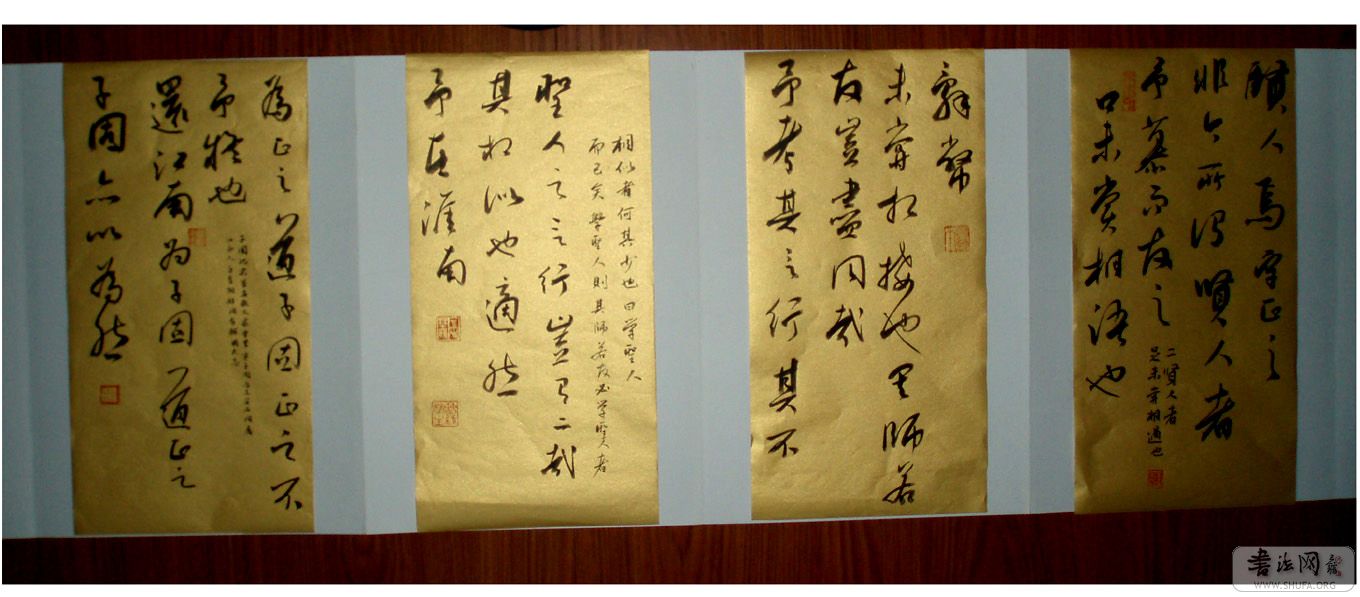 賢人焉字正之
非今所謂賢人者
予慕而友之
二賢人者
足未嘗相過也
口未嘗相語也
辭幣
未嘗相接也其師若
友豈盡同哉
予考其言行其不
相似者何其少也曰学聖人
而已矣學聖人則其師若友必学聖人者
聖人之言行豈有二哉
其相似也適然
予在淮南
為正之道子固正之不
予疑也
還江南为子固道正之
子固亦以為然
書法网
WWW.SHUFA.ORG